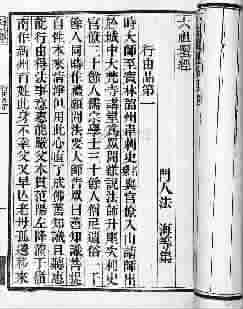 六祖壇經
門人法海等集
行由品第一
時大師至寶林韶州韋刺史與官僚入山請師出
於城中大梵寺講堂爲眾開緣說法師升座次刺史
官僚三十餘人儒宗學士三十餘人僧尼道俗一千
餘人同時作禮願聞法要大師告眾曰善知識菩提
自性本來清淨但用此心直了成佛善知識且聽惠
能行由得法事意惠能嚴父本貫范陽左降流于嶺
南作新州百姓此身不幸父又早亡老母孤遺移來